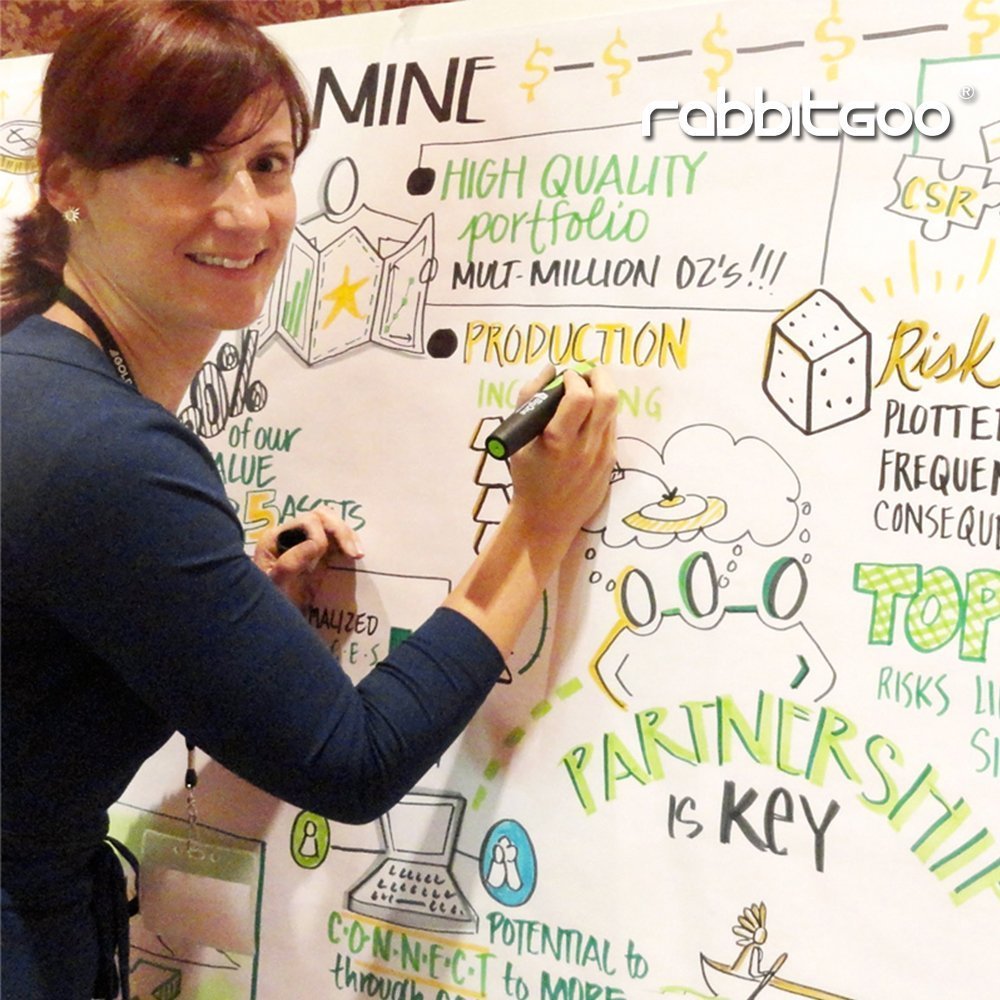 MINE $ $ $ $ $
rabbitgoo®
HIGH QUALITY
portfolio
MULT-MILLION OZ'S!!!
CSR
PRODUCTION
Risk
PLOTTE
FREQUE
CONSEQU
%
of our
ALUE
5 ASSETS
MALIZED
C·E·S
TOP
RISKS LI
SI
PARTNERSHIP
IS KEY
C·O·N·N·E·C·T
through
POTENTIAL to
to MORE
GOLD